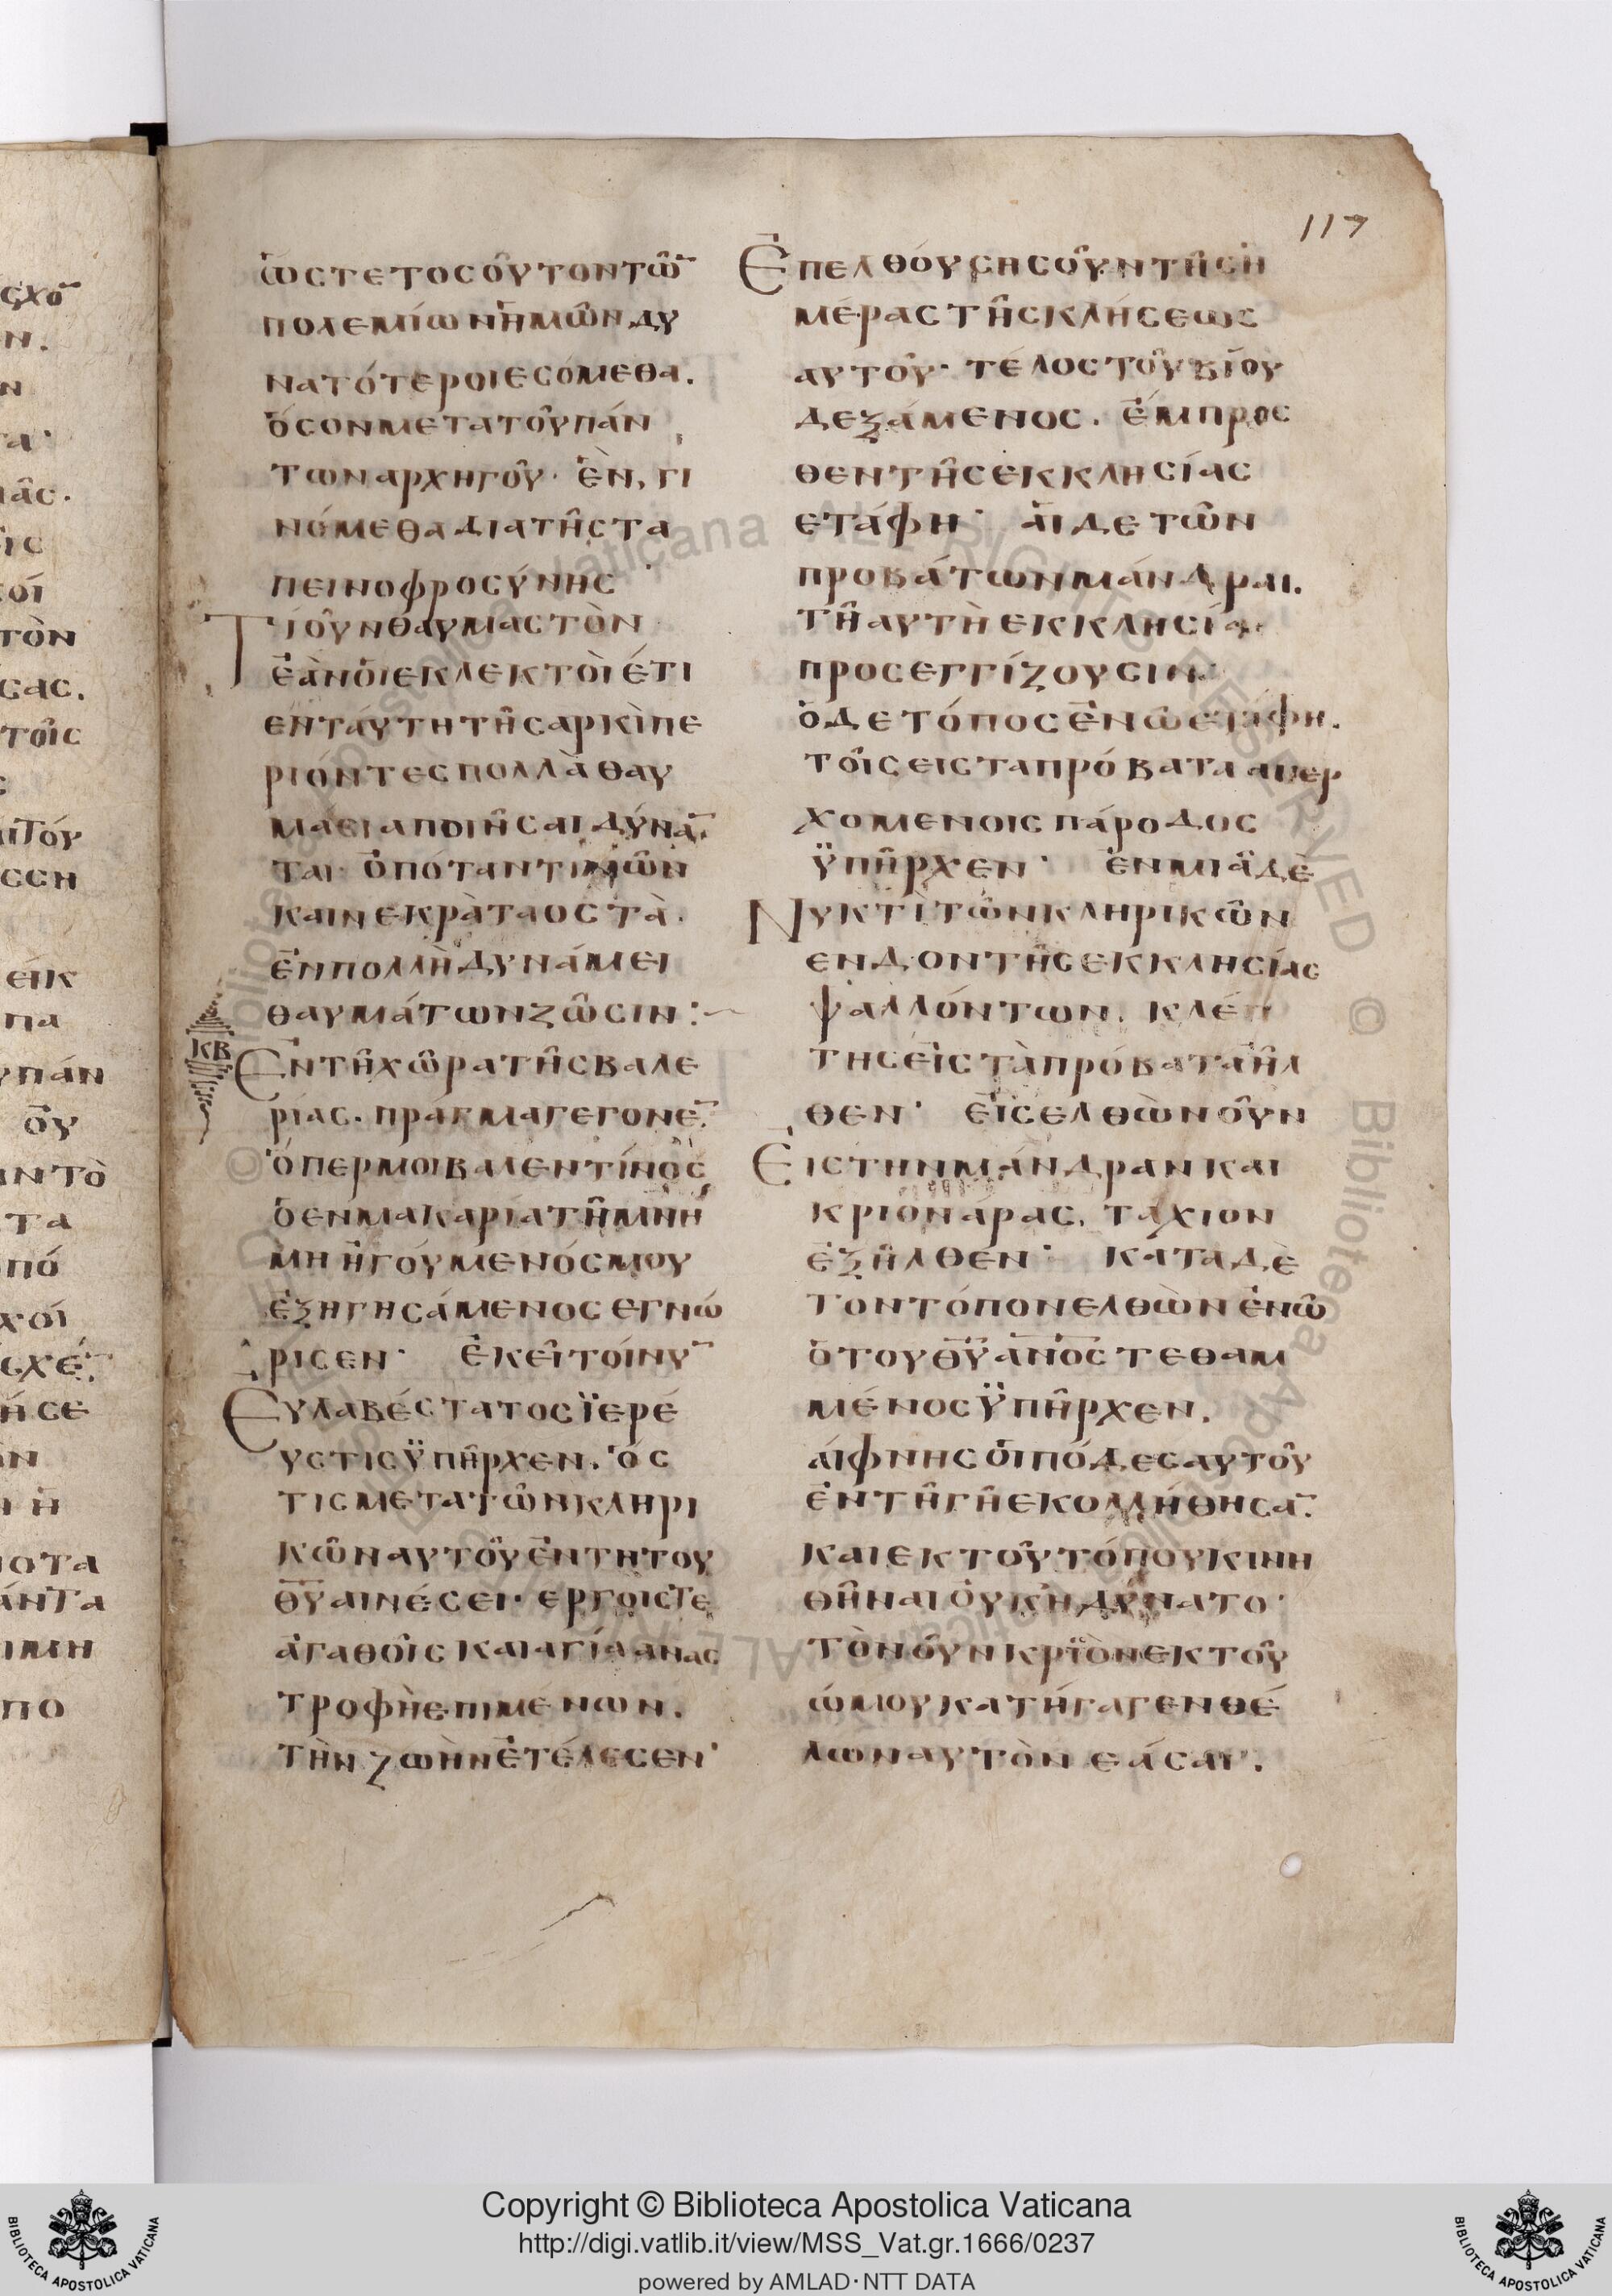 117
ὡστετοσοῦτοντῶ̅
πολεμίωνἡμῶνδυ
νατότεροιεσόμεθα.
ὅσονμετατοῦπάν
τωναρχηγοῦ· ἐν, γι
νόμεθαδιατῆςτα
πεινοφροσύνης·
Τίοῦνθαυμαστὸν
ἐὰνὁιεκλεκτὸιέτι
ενταύτητῆσαρκὶπε
ριόντεςπολλὰθαυ
μάσιαποιῆσαιδύνα̅
ται· ὁπότανταυτῶν
καινεκρὰταοστὰ.
ἐνπολλῆδυνάμει
θαυμάτωνζῶσιν:~
ΚΒ
Ἐντῆχῶρατῆςβαλε
ρίας. πρᾶγμαγεγονε̅.
ὅπερμοιβαλεντίνὸς
ὁενμακαρίατῆμνή
μηἡγούμενόςμου
ἐξηγησάμενοςεγνώ
ρισεν· ἐκεῖτοίνυ̅
Ευλαβέστατοςϊερέ
υςτιςϋπῆρχεν. ὅς
τιςμετατῶνκληρι
κῶναυτοῦἐντητου
θ̅υ̅αινέσει· εργοιςτε
ἀγαθοῖςκαιαγίααnας
τροφῆεπιμένων.
τὴνζωὴνἐτέλεσεν·
Ἐπελθούσησοῦντῆςἡ
μέραςτῆςκλήσεως
αυτοῦ· τέλοςτοῦβίου
δεξάμενος. ἐμπροσ
θεντῆςεκκλησίας
ετάφη· ἁιδετῶν
προβάτωνμάνδραι.
τῆαυτὴεκκλησία
προσεγγίζουσιν·
ὁδετόποςἐνῶετάφη.
τοῖςειςταπρόβατααπερ
χομενοιςπάροδος
ϋπῆρχεν· ἐνμιᾶδὲ
Νυκτὶτῶνκληρικῶν
ενδοντῆςεκκλησίας
ψαλλόντων. κλέπ
τηςεἰςτὰπρόβαταῆλ
θεν· εἰσελθὼνοῦν
Ειςτηνμάνδρανκαι
κριὸνάρας. τάχιον
ἐξῆλθεν· καταδὲ
τοντόπονελθὼνἐνῶ
ὁτουθ̅υ̅α̅ν̅ο̅ςτεθαμ
μένοςϋπῆρχεν.
ἀίφνηςὁιπόδεςαυτοῦ
ἐντῆγῆεκολλήθησα̅.
καιεκτοῦτόπουκινη
θῆναιὀυκἠδύνατο·
τὸνοῦνκρϊὸνεκτοῦ
ώμουκατήγαγενθέ
λωναυτὸνεάσαι.
Copyright © Biblioteca Apostolica Vaticana
http://digi.vatlib.it/view/MSS_Vat.gr.1666/0237
powered by AMLAD·NTT DATA
BIBLIOTECA APOSTOLICA VATICANA
BIBLIOTECA APOSTOLICA VATICANA